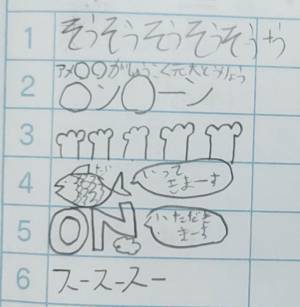 1 そうそうそうそうそうやう
2 アメ〇〇がしゅうこく元大とうりょう
〇ン〇ーン
3
4 たい いって
きまーす
5 ON いただき
まーす
6 スースースー